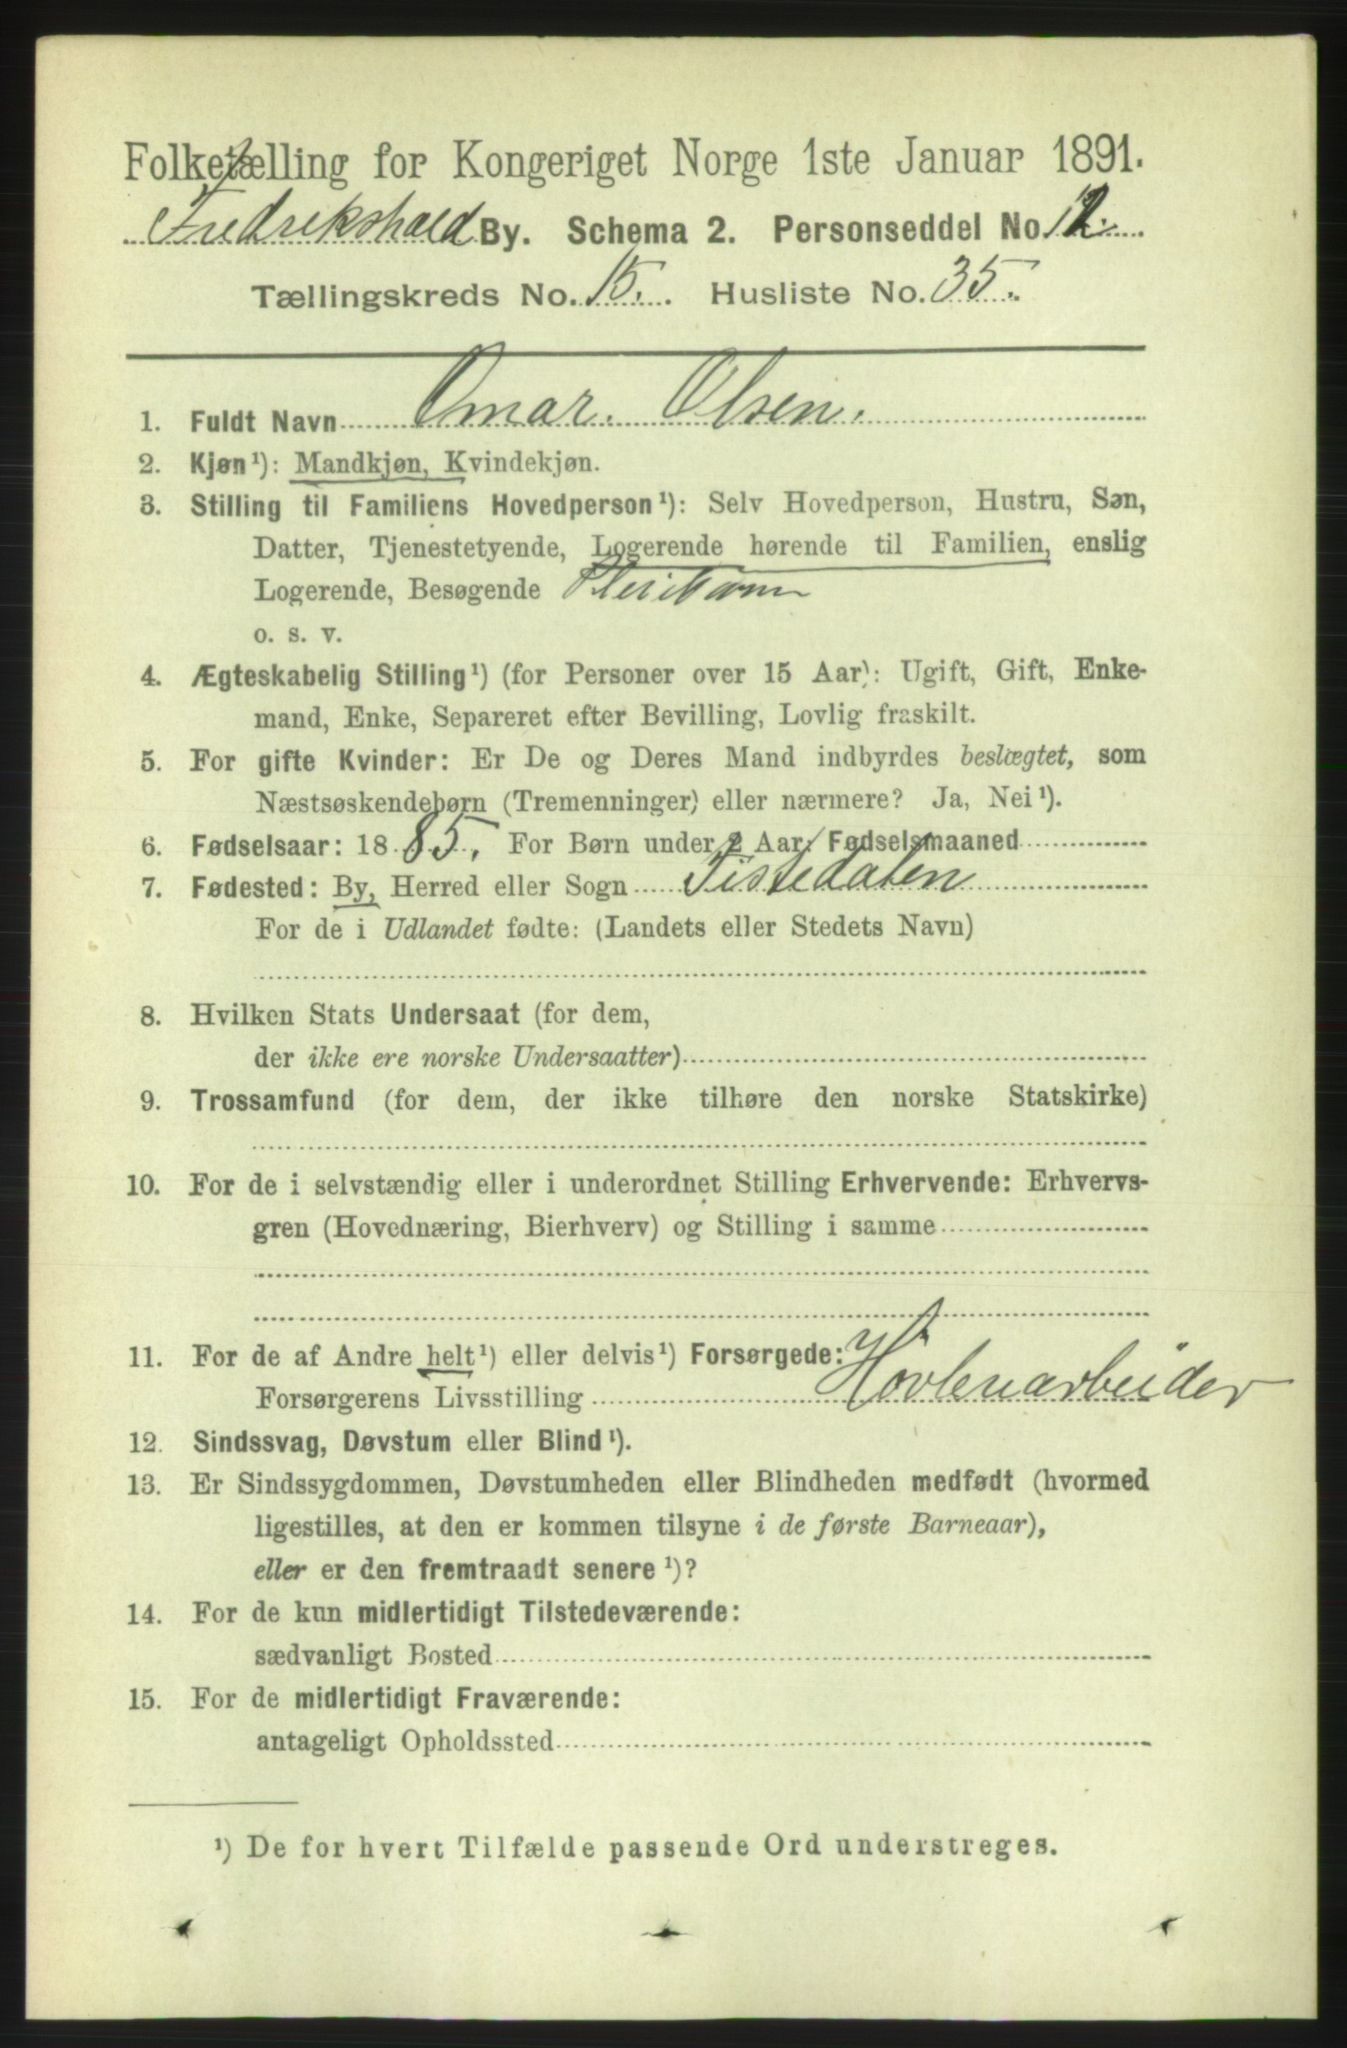 Folketælling for Kongeriget Norge 1ste Januar 1891.
Fredrikshald By. Schema 2. Personseddel No. 12.
Tællingskreds No. 15. Husliste No. 35.
1. Fuldt Navn Omar. Olsen.
2. Kjøn¹): Mandkjøn, Kvindekjøn.
3. Stilling til Familiens Hovedperson¹): Selv Hovedperson, Hustru, Søn,
Datter, Tjenestetyende, Logerende hørende til Familien, enslig
Logerende, Besøgende Pleiebarn
o. s. v.
4. Ægteskabelig Stilling¹) (for Personer over 15 Aar): Ugift, Gift, Enke-
mand, Enke, Separeret efter Bevilling, Lovlig fraskilt.
5. For gifte Kvinder: Er De og Deres Mand indbyrdes beslægtet, som
Næstsøskendebørn (Tremenninger) eller nærmere? Ja, Nei¹).
6. Fødselsaar: 1885. For Børn under 2 Aar: Fødselsmaaned
7. Fødested: By, Herred eller Sogn Tistedalen
For de i Udlandet fødte: (Landets eller Stedets Navn)
8. Hvilken Stats Undersaat (for dem,
der ikke ere norske Undersaatter)
9. Trossamfund (for dem, der ikke tilhøre den norske Statskirke)
10. For de i selvstændig eller i underordnet Stilling Erhvervende: Erhvervs-
gren (Hovednæring, Bierhverv) og Stilling i samme
11. For de af Andre helt¹) eller delvis¹) Forsørgede:
Forsørgerens Livsstilling Høvleriarbeider
12. Sindssvag, Døvstum eller Blind¹).
13. Er Sindssygdommen, Døvstumheden eller Blindheden medfødt (hvormed
ligestilles, at den er kommen tilsyne i de første Barneaar),
eller er den fremtraadt senere¹)?
14. For de kun midlertidigt Tilstedeværende:
sædvanligt Bosted
15. For de midlertidigt Fraværende:
antageligt Opholdssted
¹) De for hvert Tilfælde passende Ord understreges.